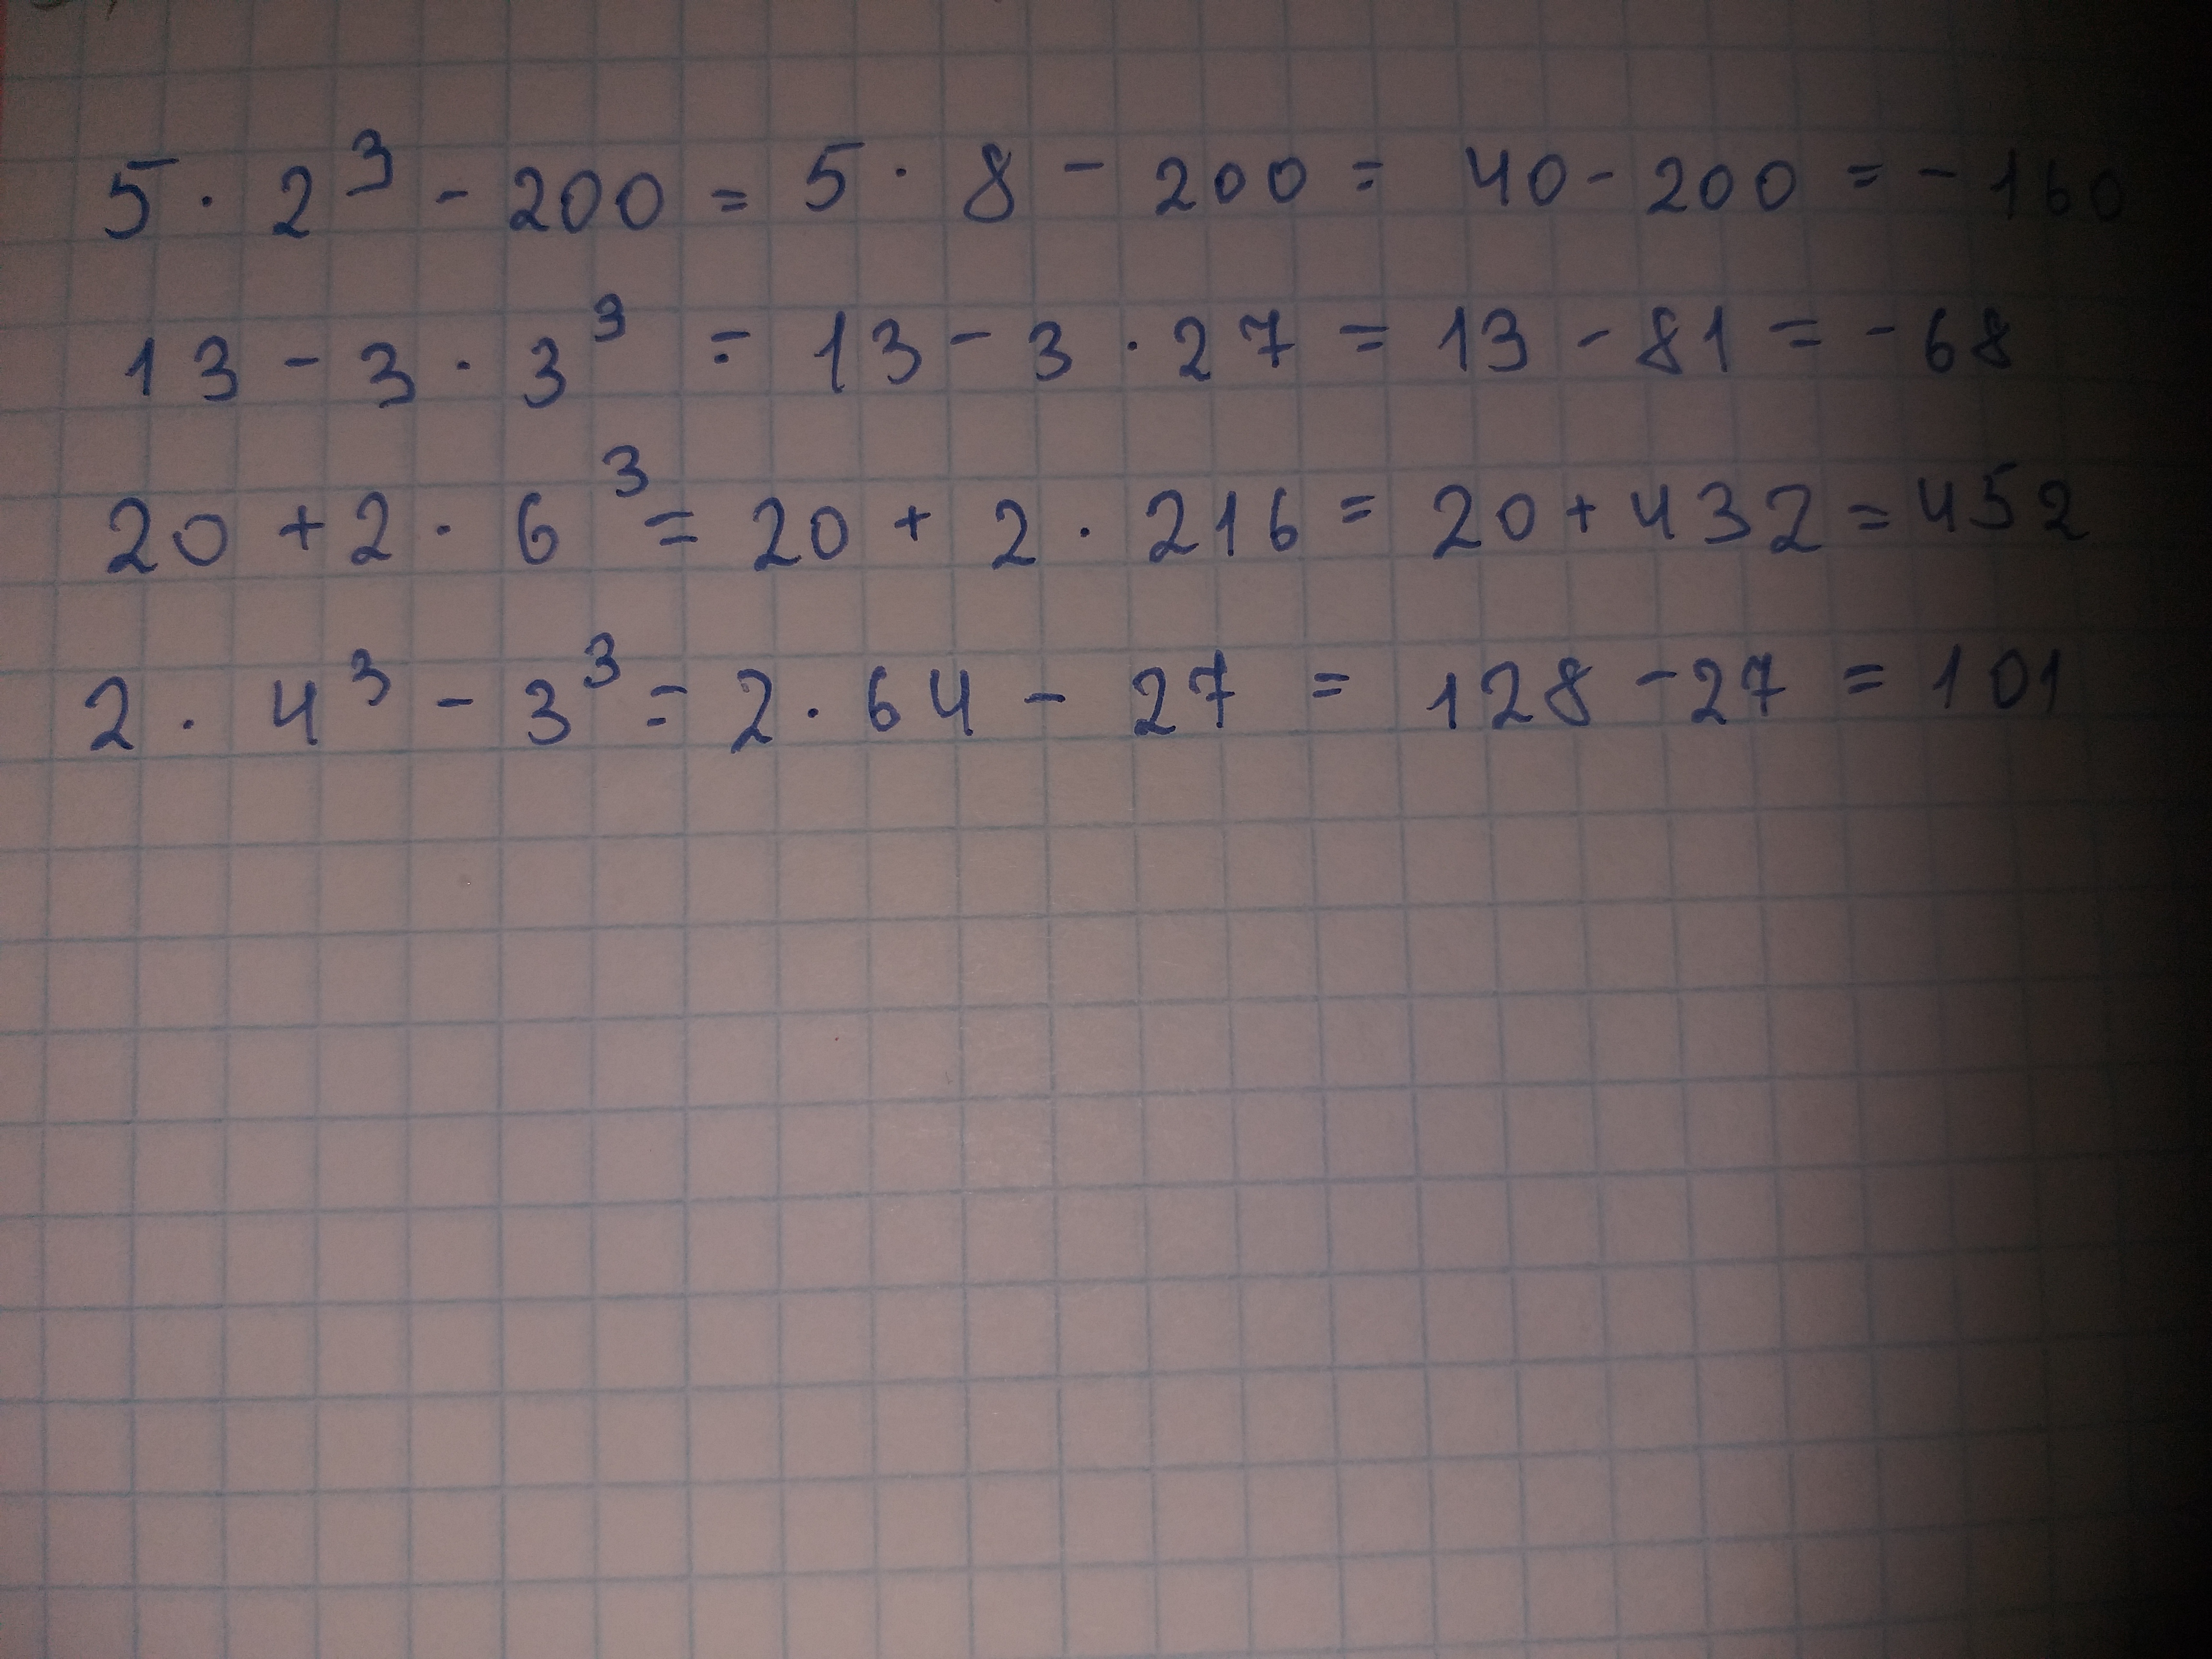 5 · 2³ - 200 = 5 · 8 - 200 = 40 - 200 = - 160
13 - 3 · 3³ = 13 - 3 · 27 = 13 - 81 = - 68
20 + 2 · 6³ = 20 + 2 · 216 = 20 + 432 = 452
2 · 4³ - 3³ = 2 · 64 - 27 = 128 - 27 = 101